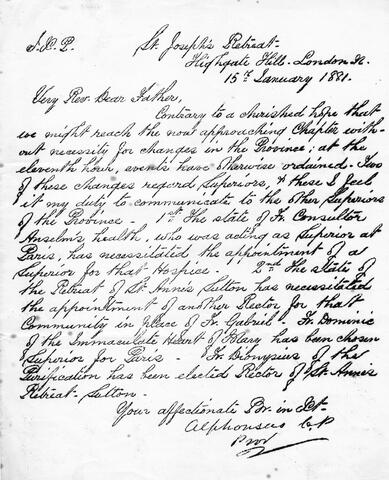 J.X.P. St. Joseph's Retreat-
Highgate Hill. London N.
15th January 1881.
Very Rev. Dear Father,
Contrary to a churished hope that
we might reach the now approaching Chapter with-
out necessity for changes in the Province; at the
eleventh hour, events have otherwise ordained. Two
of these changes regard Superiors, & these I feel
it my duty to communicate to the other Superiors
of the Province. 1st The state of Fr. Consultor
Anselm's health, who was acting as Superior at
Paris, has necessitated the appointment of a
Superior for that Hospice. 2nd The state of
the Retreat of St. Anne's Sutton has necessitated
the appointment of another Rector for that
Community in place of Fr. Gabriel. Fr. Dominic
of the Immaculate Heart of Mary has been chosen
Superior for Paris. Fr. Dionysius of the
Purification has been elected Rector of St. Anne's
Retreat- Sutton.
Your affectionate Br. in Xt.
Alphonsus C.P.
Prov